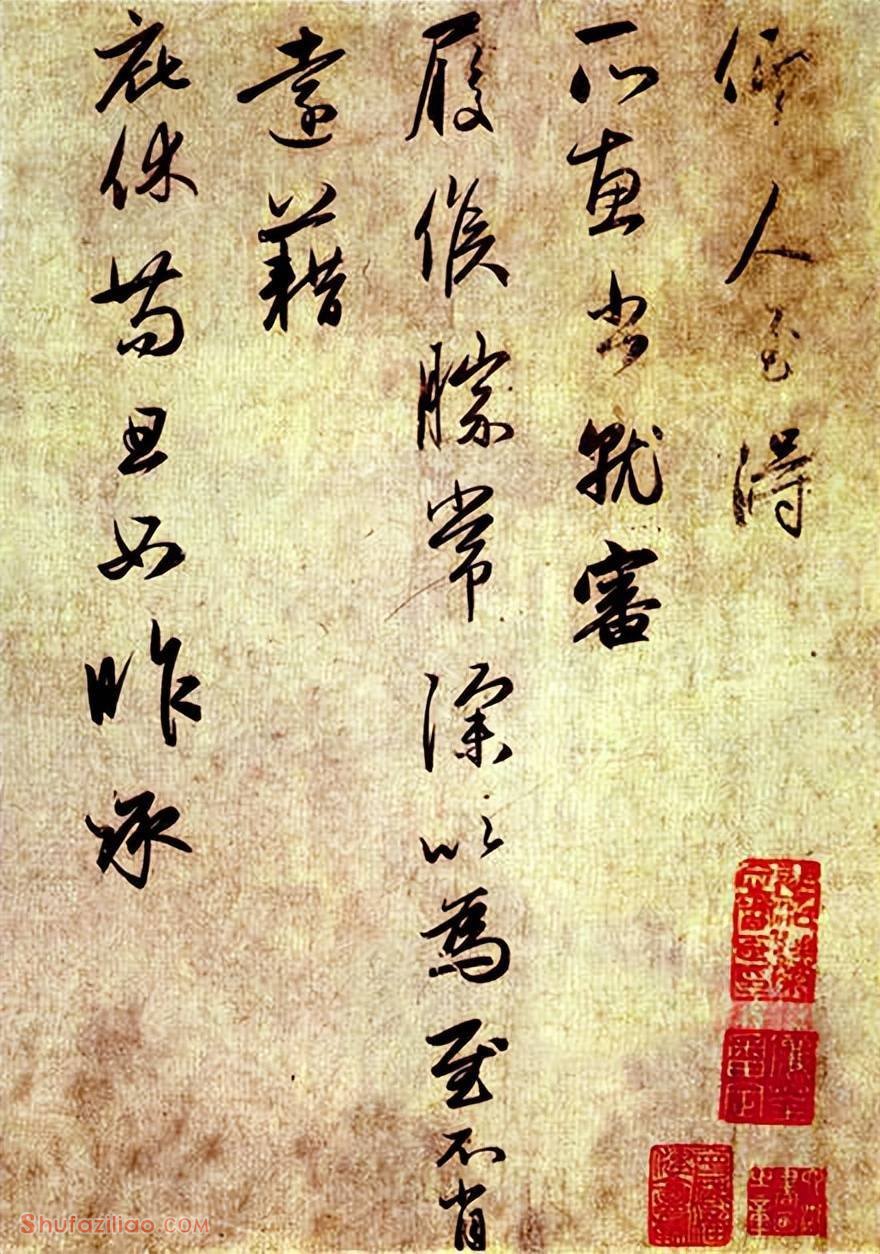 人至得
所惠書就審
履候勝常深以為慰不肖
遠藉
庇休苟且如昨承
Shufaziliao.COM